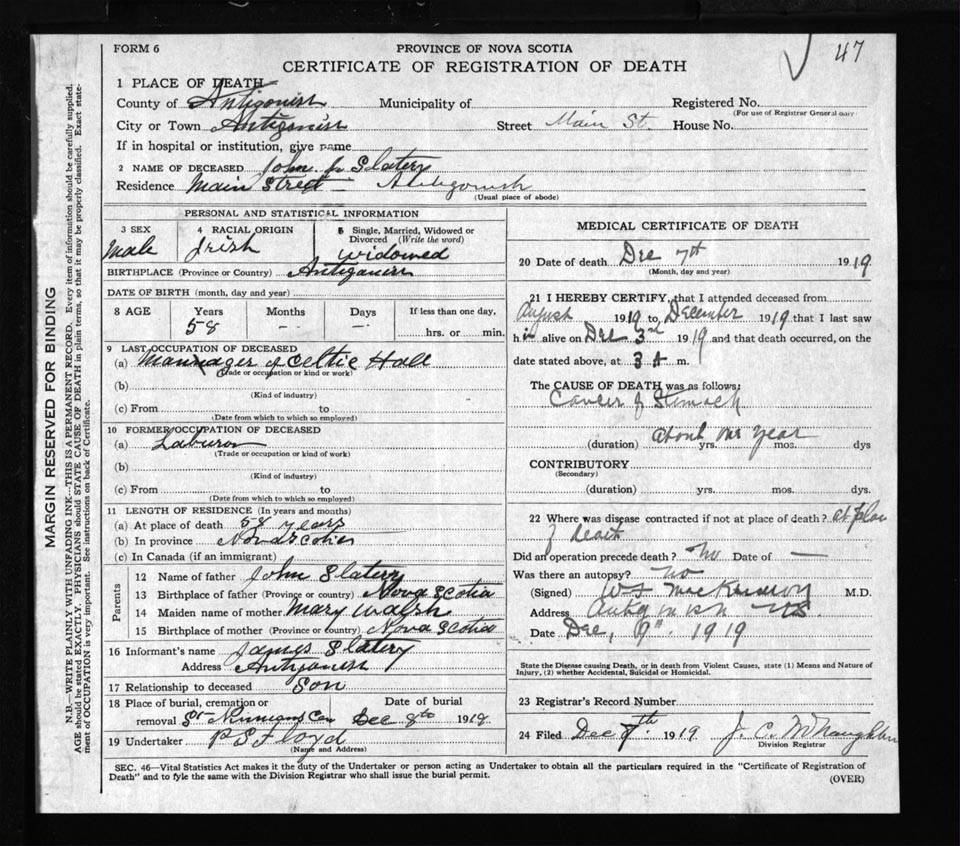 47
FORM 6
PROVINCE OF NOVA SCOTIA
CERTIFICATE OF REGISTRATION OF DEATH
1 PLACE OF DEATH
County of Antigonish Municipality of Registered No.
(For use of Registrar General only
City or Town Antigonish Street Main St. House No.
If in hospital or institution, give name
2 NAME OF DECEASED John Slatery
Residence Main Street — Antigonish
(Usual place of abode)
PERSONAL AND STATISTICAL INFORMATION
3 SEX Male
4 RACIAL ORIGIN Irish
5 Single, Married, Widowed or Divorced (Write the word) widowed
BIRTHPLACE (Province or Country) Antigonish
DATE OF BIRTH (month, day and year)
8 AGE Years Months Days If less than one day,
58 — — hrs. or min.
9 LAST OCCUPATION OF DECEASED
(a) Mannager of Celtic Hall
(Trade or occupation or kind or work)
(b)
(Kind of industry)
(c) From to
(Date from which to which so employed)
10 FORMER OCCUPATION OF DECEASED
(a) Laburor
(Trade or occupation or kind of work)
(b)
(Kind of industry)
(c) From to
(Date from which to which so employed)
11 LENGTH OF RESIDENCE (In years and months)
(a) At place of death 58 years
(b) In province Nova Scotia
(c) In Canada (if an immigrant)
Parents
12 Name of father John Slatery
13 Birthplace of father (Province or country) Nova Scotia
14 Maiden name of mother Mary Walsh
15 Birthplace of mother (Province or country) Nova Scotia
16 Informant's name James Slatery
Address Antigonish
17 Relationship to deceased Son
18 Place of burial, cremation or Date of burial
removal St Ninians Cem Dec 8th 1919
19 Undertaker P S Floyd
(Name and Address)
MEDICAL CERTIFICATE OF DEATH
20 Date of death Dec 7th 1919
(Month, day and year)
21 I HEREBY CERTIFY, that I attended deceased from
August 1919 to December 1919 that I last saw
him alive on Dec 3rd 1919 and that death occurred, on the
date stated above, at 3 A m.
The CAUSE OF DEATH was as follows:
Cancer of Stomach
(duration) about one year yrs. mos. dys
CONTRIBUTORY
(Secondary)
(duration) yrs. mos. dys.
22 Where was disease contracted if not at place of death? at place
of death
Did an operation precede death? No Date of —
Was there an autopsy? No
(Signed) M.D.
Address Antigonish NS
Date Dec, 9th 1919
State the Disease causing Death, or in death from Violent Causes, state (1) Means and Nature of
Injury, (2) whether Accidental, Suicidal or Homicidal.
23 Registrar's Record Number
24 Filed Dec 1919 J. C. McNaughton
Division Registrar
SEC. 46—Vital Statistics Act makes it the duty of the Undertaker or person acting as Undertaker to obtain all the particulars required in the "Certificate of Registration of
Death" and to fyle the same with the Division Registrar who shall issue the burial permit.
(OVER)
MARGIN RESERVED FOR BINDING
N.B.—WRITE PLAINLY WITH UNFADING INK—THIS IS A PERMANENT RECORD. Every item of information should be carefully supplied.
AGE should be stated EXACTLY. PHYSICIANS should STATE CAUSE OF DEATH in plain terms, so that it may be properly classified. Exact state-
ment of OCCUPATION is very important. See instructions on back of Certificate.